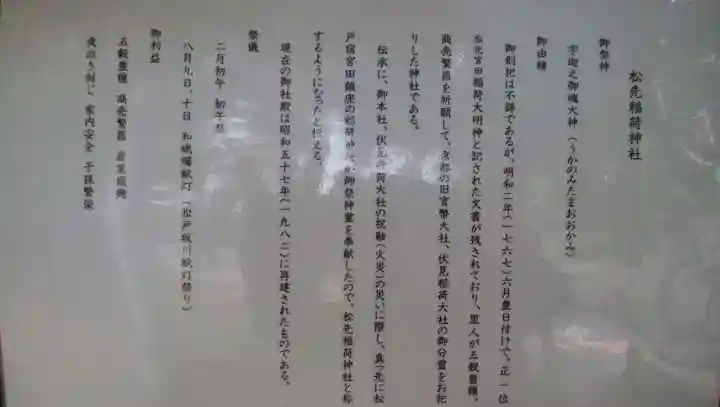 松先稲荷神社
御祭神
宇迦之御魂大神(うかのみたまおおかみ)
御由緒
御創祀は不詳であるが、明和二年(一七六七)六月豊日付けで、正一位
松先宮田稲荷大明神と記された文書が残されており、里人が五穀豊穣、
商売繁昌を祈願して、京都の旧官幣大社、伏見稲荷大社の御分霊をお祀
りした神社である。
伝承に、御本社、伏見稲荷大社の祝融(火災)の災いに際し、真っ先に松
戸宿宮田鎮座の稲荷神社が御祭神霊を奉献したので、松先稲荷神社と称
するようになったと伝える。
現在の御社殿は昭和五十七年(一九八二)に再建されたものである。
祭儀
二月初午 初午祭
八月九日、十日 和蝋燭献灯(松戸坂川献灯祭り)
御利益
五穀豊穣 商売繁昌 産業振興
家内安全 子孫繁栄